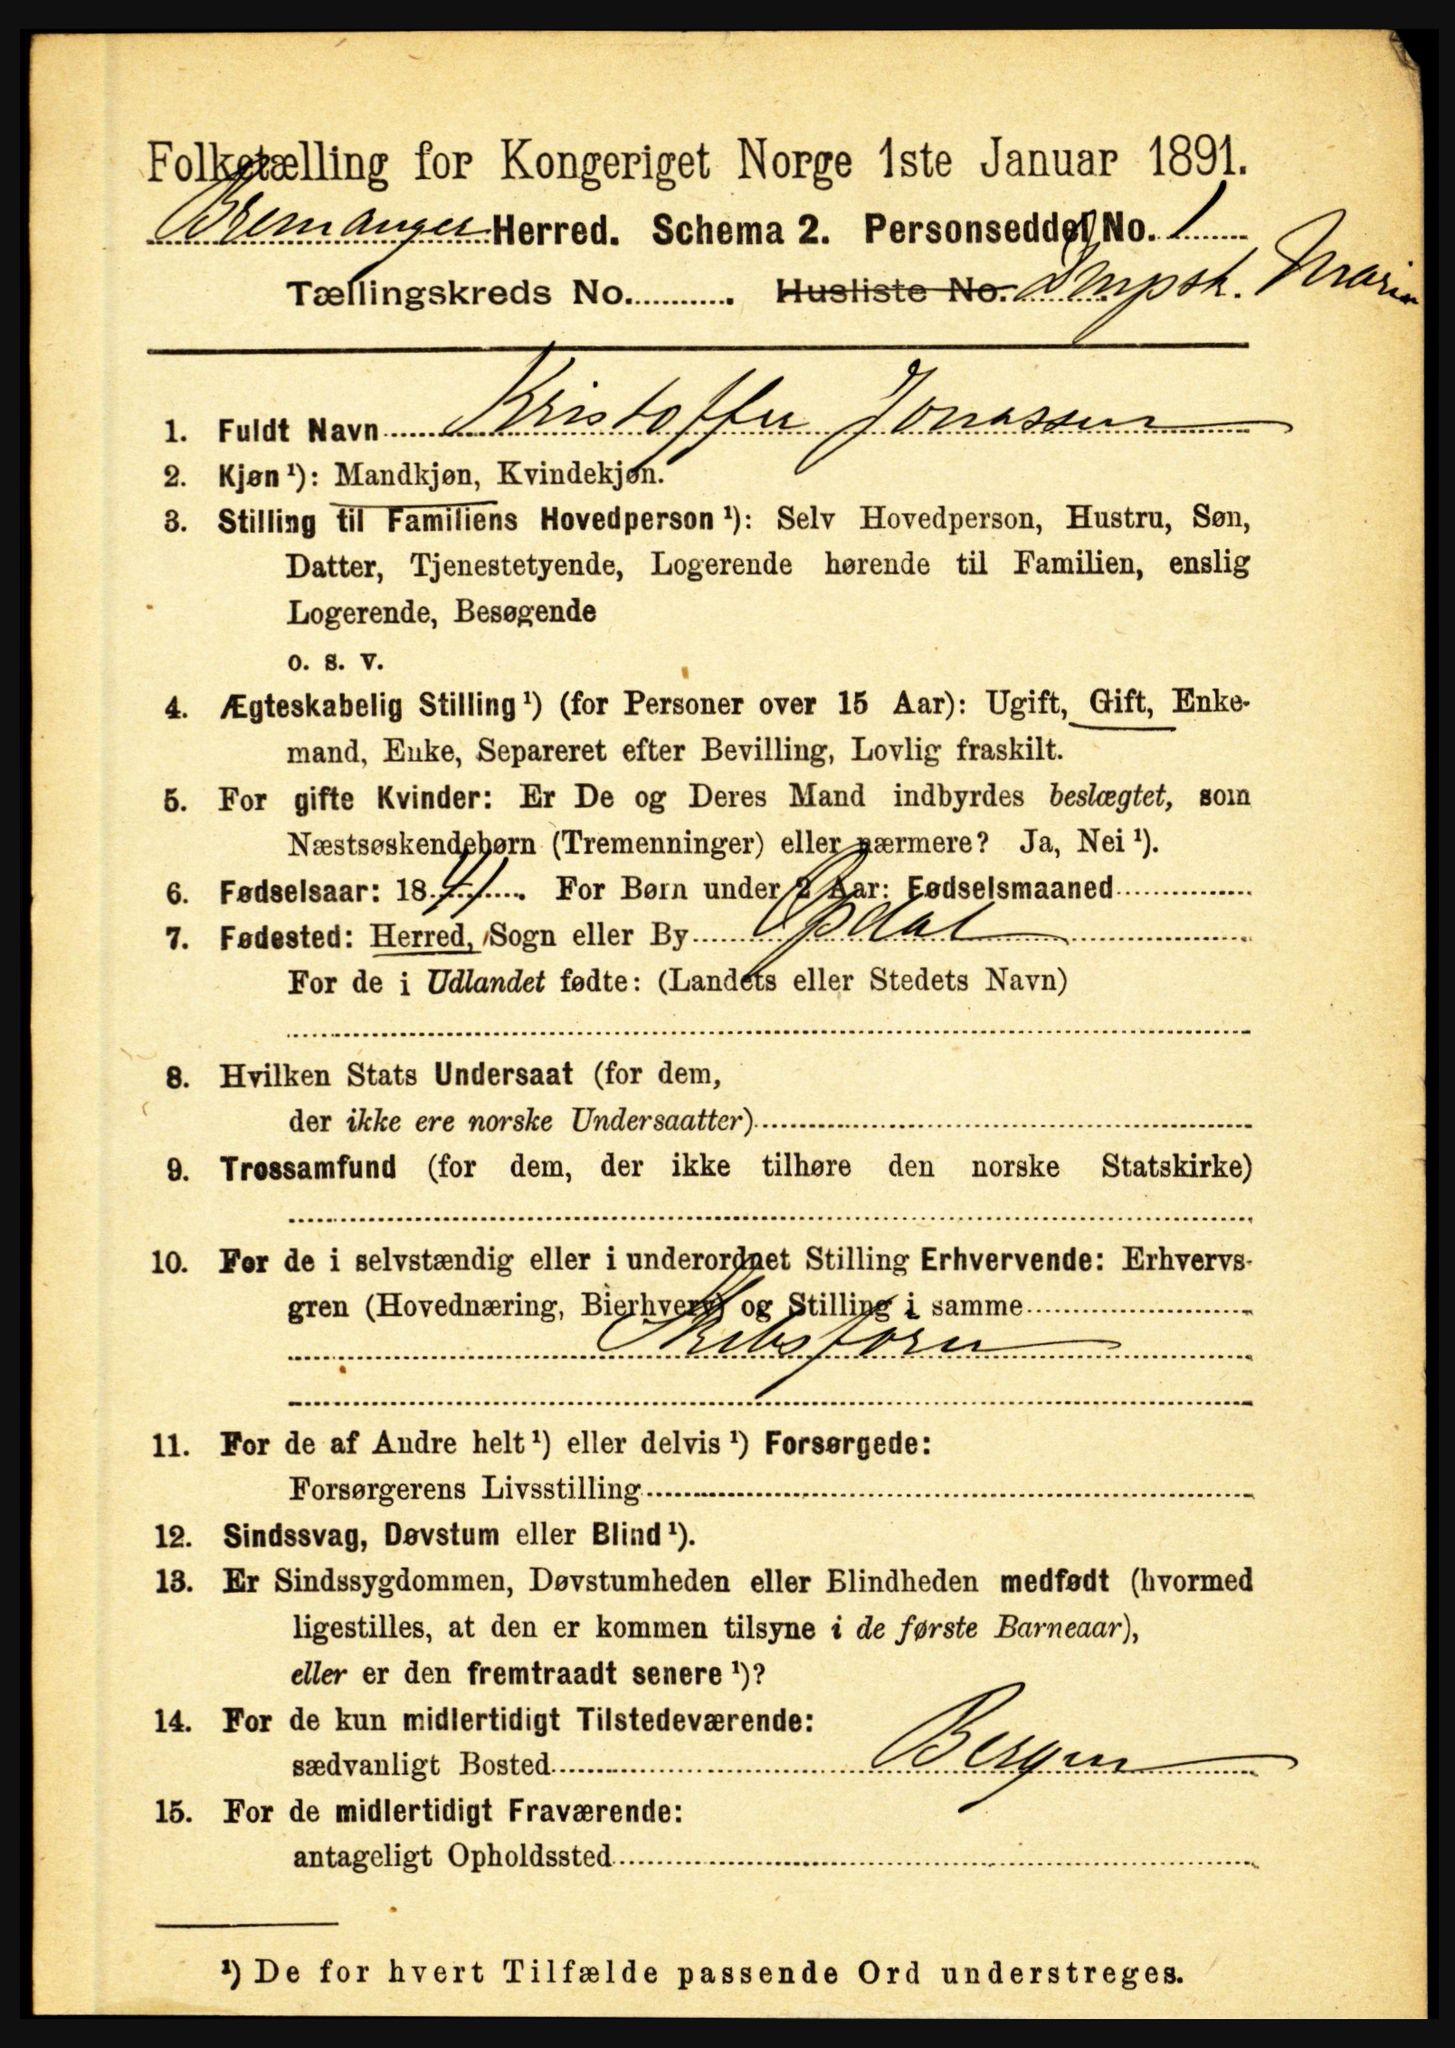 Folketælling for Kongeriget Norge 1ste Januar 1891.
Bremanger Herred. Schema 2. Personseddel No. 1
Tællingskreds No. Husliste No. Dmpsk. Marie
1. Fuldt Navn Kristoffer Jonassen
2. Kjøn¹): Mandkjøn, Kvindekjøn.
3. Stilling til Familiens Hovedperson¹): Selv Hovedperson, Hustru, Søn,
Datter, Tjenestetyende, Logerende hørende til Familien, enslig
Logerende, Besøgende
o. s. v.
4. Ægteskabelig Stilling¹) (for Personer over 15 Aar): Ugift, Gift, Enke-
mand, Enke, Separeret efter Bevilling, Lovlig fraskilt.
5. For gifte Kvinder: Er De og Deres Mand indbyrdes beslægtet, som
Næstsøskendebørn (Tremenninger) eller nærmere? Ja, Nei¹).
6. Fødselsaar: 1841. For Børn under 2 Aar: Fødselsmaaned
7. Fødested: Herred, Sogn eller By Opdal
For de i Udlandet fødte: (Landets eller Stedets Navn)
8. Hvilken Stats Undersaat (for dem,
der ikke ere norske Undersaatter)
9. Trossamfund (for dem, der ikke tilhøre den norske Statskirke)
10. For de i selvstændig eller i underordnet Stilling Erhvervende: Erhvervs-
gren (Hovednæring, Bierhverv) og Stilling i samme
Skibsfører
11. For de af Andre helt¹) eller delvis¹) Forsørgede:
Forsørgerens Livsstilling
12. Sindssvag, Døvstum eller Blind¹).
13. Er Sindssygdommen, Døvstumheden eller Blindheden medfødt (hvormed
ligestilles, at den er kommen tilsyne i de første Barneaar),
eller er den fremtraadt senere¹)?
14. For de kun midlertidigt Tilstedeværende:
sædvanligt Bosted Bergen
15. For de midlertidigt Fraværende:
antageligt Opholdssted
¹) De for hvert Tilfælde passende Ord understreges.